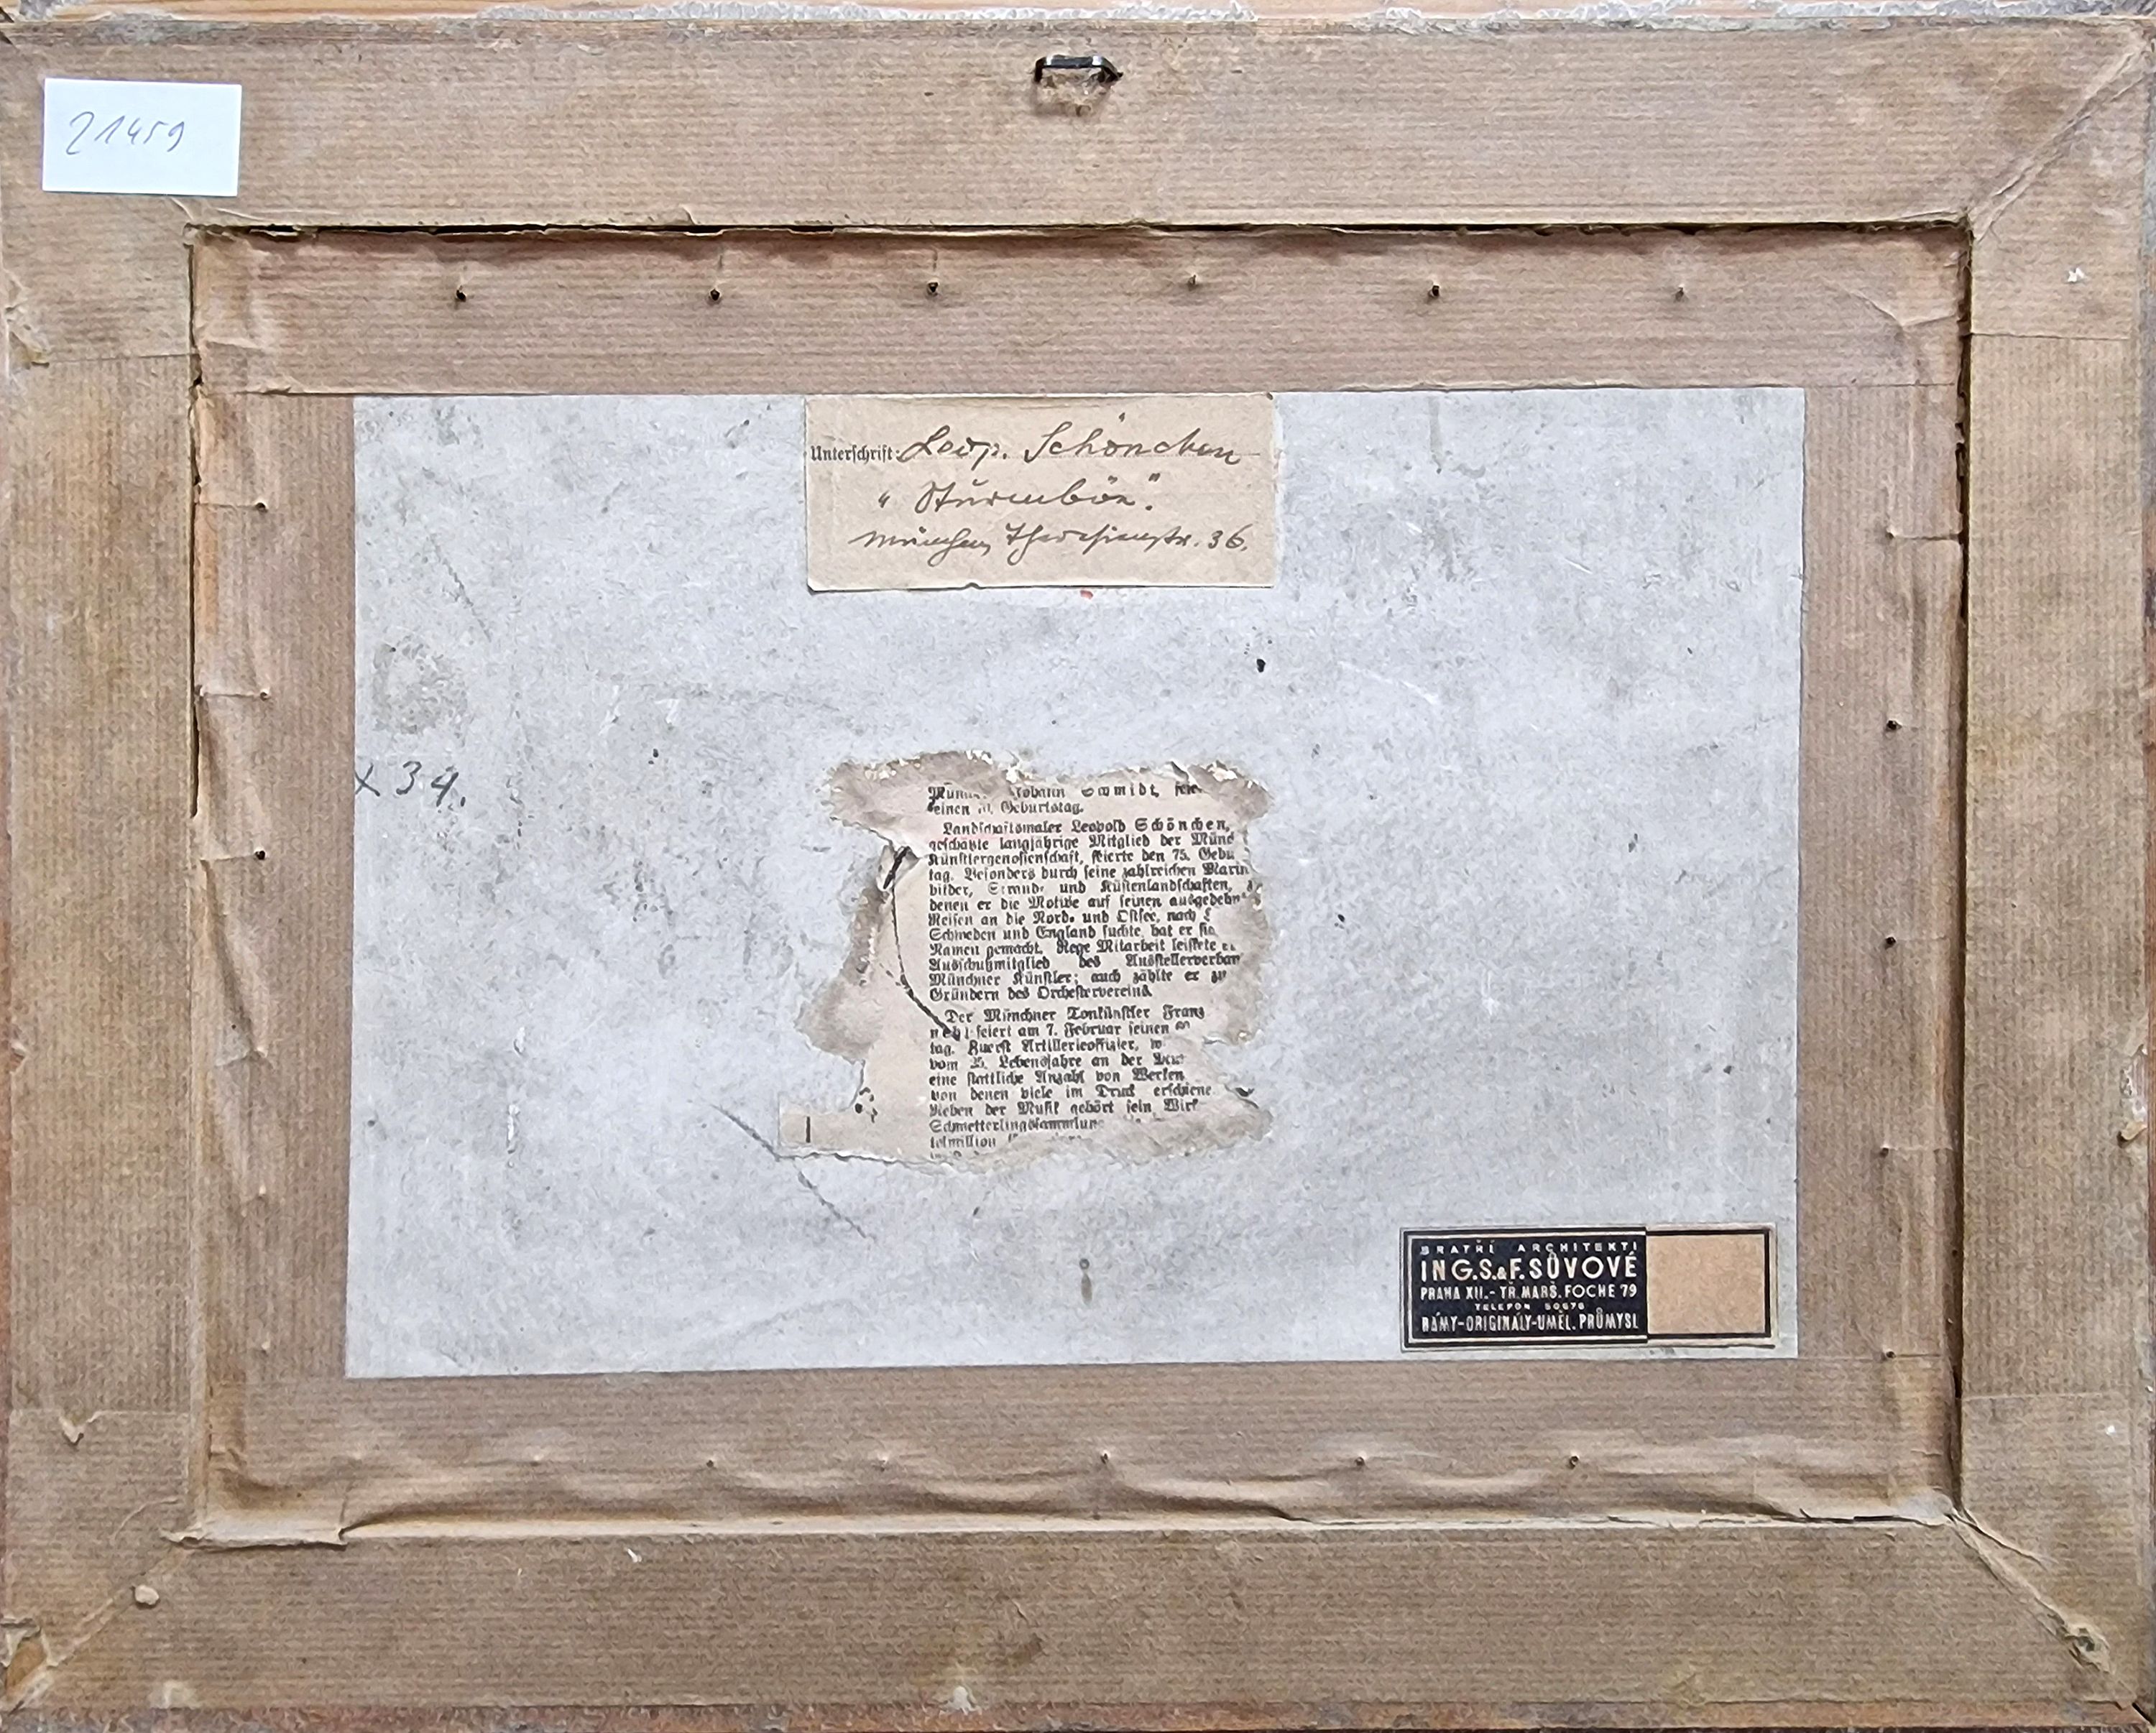 21459
Unterschrift: Leop. Schönchen
"Sturmböe".
München, Theresienstr. 36.
x 34.
Johann Schmidt,
seinen Geburtstag.
Landschaftsmaler Leopold Schönchen,
geschätzte langjährige Mitglied der Münc
Künstlergenossenschaft, feierte den 75. Gebu
tag. Besonders durch seine zahlreichen Marin
bilder, Strand- und Küstenlandschaften,
denen er die Motive auf seinen ausgedehn
Reisen an die Nord- und Ostsee, nach
Schweden und England suchte, hat er sic
Namen gemacht. Rege Mitarbeit leistete
Ausschußmitglied des Ausstellerverban
Münchner Künstler; auch zählte er zu
Gründern des Orchestervereins.
Der Münchner Tonkünstler Franz
feiert am 7. Februar seinen
tag. Zuerst Artillerieoffizier,
vom 25. Lebensjahre an der
eine stattliche Anzahl von Werken
von denen viele im Druck erschiene
Neben der Musik gehört sein Wirk
Schmetterlingssammlung
telmillion
BRATŘI ARCHITEKTI
ING.S.&F.SŮVOVÉ
PRAHA XII.-TŘ.MARŠ.FOCHE 79
TELEFON
RÁMY-ORIGINÁLY-UMĚL.PRŮMYSL